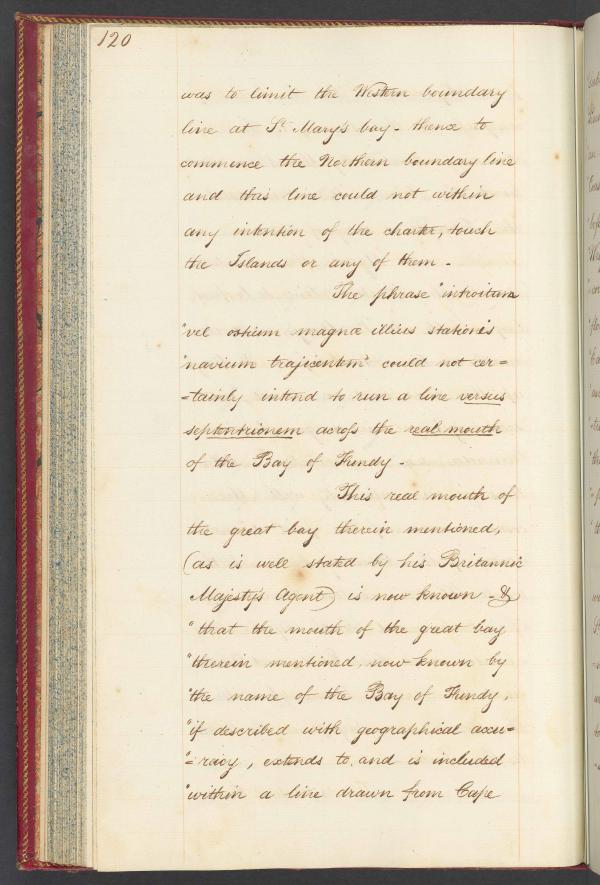 120
was to limit the Western boundary
line at St. Mary's bay - thence to
commence the Northern boundary line
and this line could not within
any intention of the charter, touch
the Islands or any of them -
The phrase "introitum
"vel ostium magnæ illius stationis
"navium trajicientem" could not cer=
=tainly intend to run a line versus
septentrionem across the real mouth
of the Bay of Fundy -
This real mouth of
the great bay therein mentioned,
(as is well stated by his Britannic
Majesty's Agent) is now known - &
"that the mouth of the great bay
"therein mentioned, now known by
"the name of the Bay of Fundy,
"if described with geographical accu=
"=racy, extends to, and is included
"within a line drawn from Cape